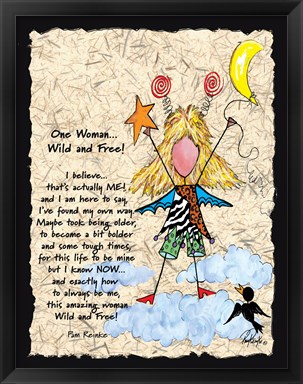 One Woman...
Wild and Free!
I believe...
that's actually ME!
and I am here to say,
I've found my own way.
Maybe took being older,
to become a bit bolder
and some tough times,
for this life to be mine
but I know NOW...
and exactly how
to always be me,
this amazing woman
Wild and Free!
Pam Reinke